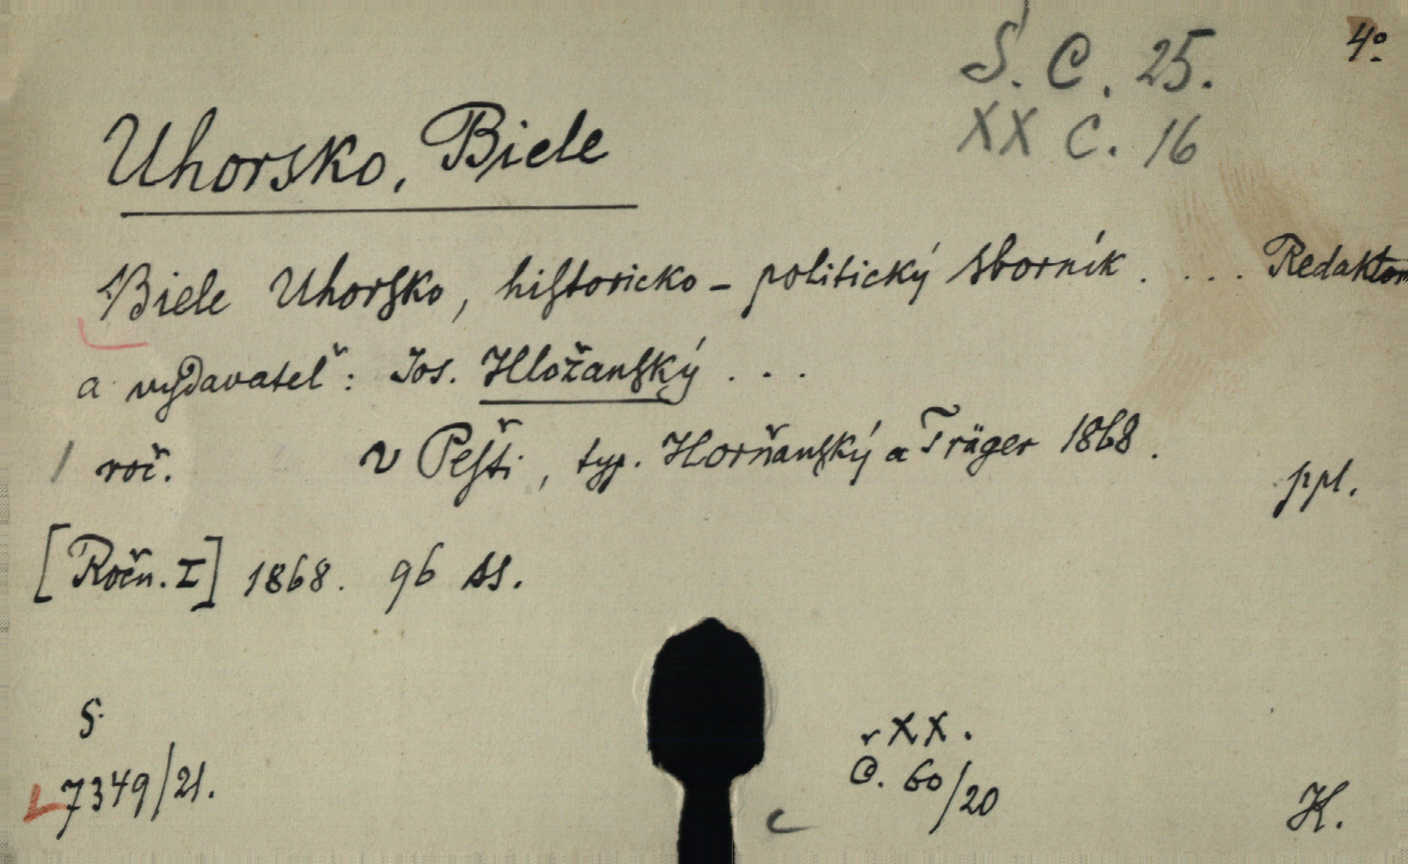 4°
S. C. 25.
XX C. 16
Uhorsko, Biele
Biele Uhorsko, historicko-politický sborník . ... Redaktor
a vydavateľ: Jos. Hložanský ...
1 roč. v Pešti, typ. Horňanský a Träger 1868.
ppl.
[Ročn. I] 1868. 96 ss.
S
7349/21.
r XX.
C. 60/20
H.